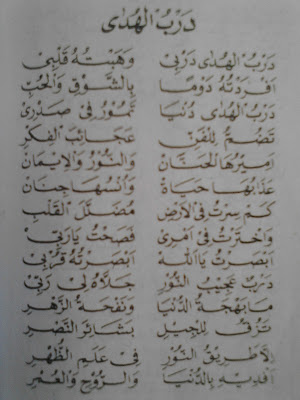 دَرْبُ الْهُدٰى
دَرْبُ الْهُدٰى دَرْبِي وَهَبْتُهُ قَلْبِيْ
أَفْرَدْتُهُ دَوْمًا بِالشَّوْقِ وَالْحُبِّ
دَرْبُ الْهُدٰى دُنْيَا تَمُوْرُ فِى صَدْرِىْ
تَضُمُّ لِلْفَنِّ عَجَائِبَ الْفِكْرِ
اَمِيْرُهَا الْحَنَانْ وَالنُّوْرُ وَالْاِيْمَانْ
عَذَابُهَا حَيَاةْ وَاُنْسُهَا جِنَانْ
كَمْ سِرْتُ فِى الْاَرْضِ مُضَلَّلَ الْقَلْبِ
وَاحْتَرْتُ فِى اَمْرِىْ فَصَحْتُ يَارَبِّىْ
اَبْصَرْتُ يَااَللّٰهْ اَبْصَرْتُهُ قُرْبِىْ
دَرْبٌ عَجِيْبُ النُّوْرْ جَلَاهُ لِىْ رَبِّىْ
مَا بَهْجَةُ الدُّنْيَا وَنَفْحَةُ الزَّهْرِ
تَزُفُّ لِلْجِيْلِ بَشَائِرَ النَّصْرِ
اِلَّا طَرِيْقُ النُّوْرْ فِى عَالَمِ الطُّهْرِ
اَفْدِيْهِ بِالدُّنْيَا وَالرُّوْحِ وَالْعُمْرِ